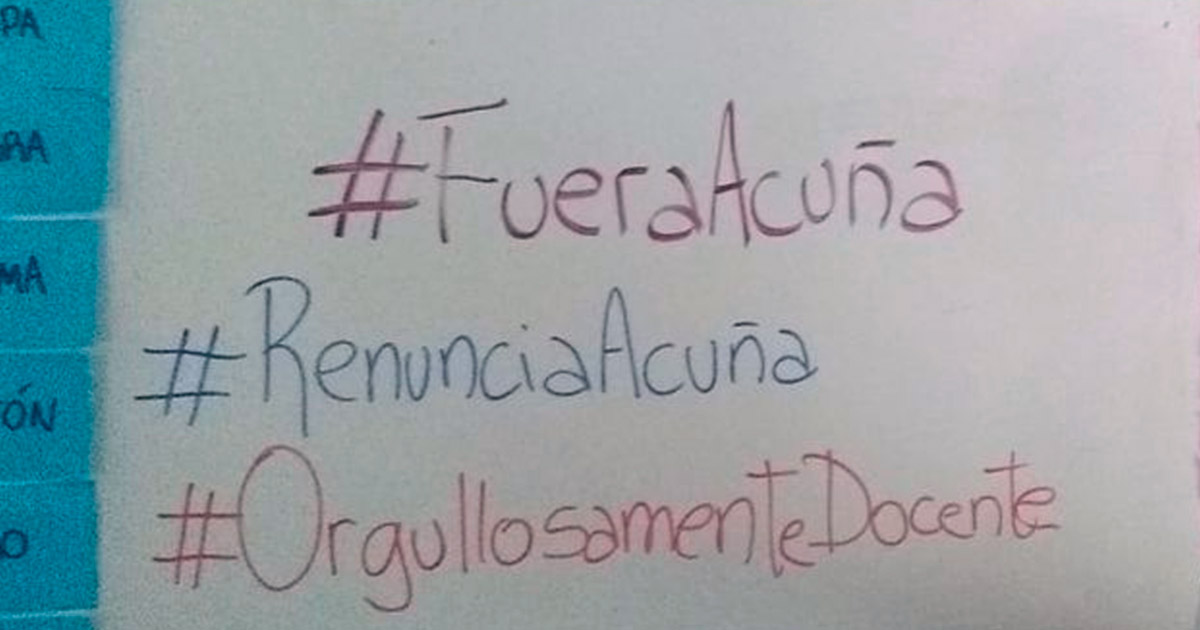 PA
RA
MA
ÓN
O
#FueraAcuña
#RenunciaAcuña
#OrgullosamenteDocente